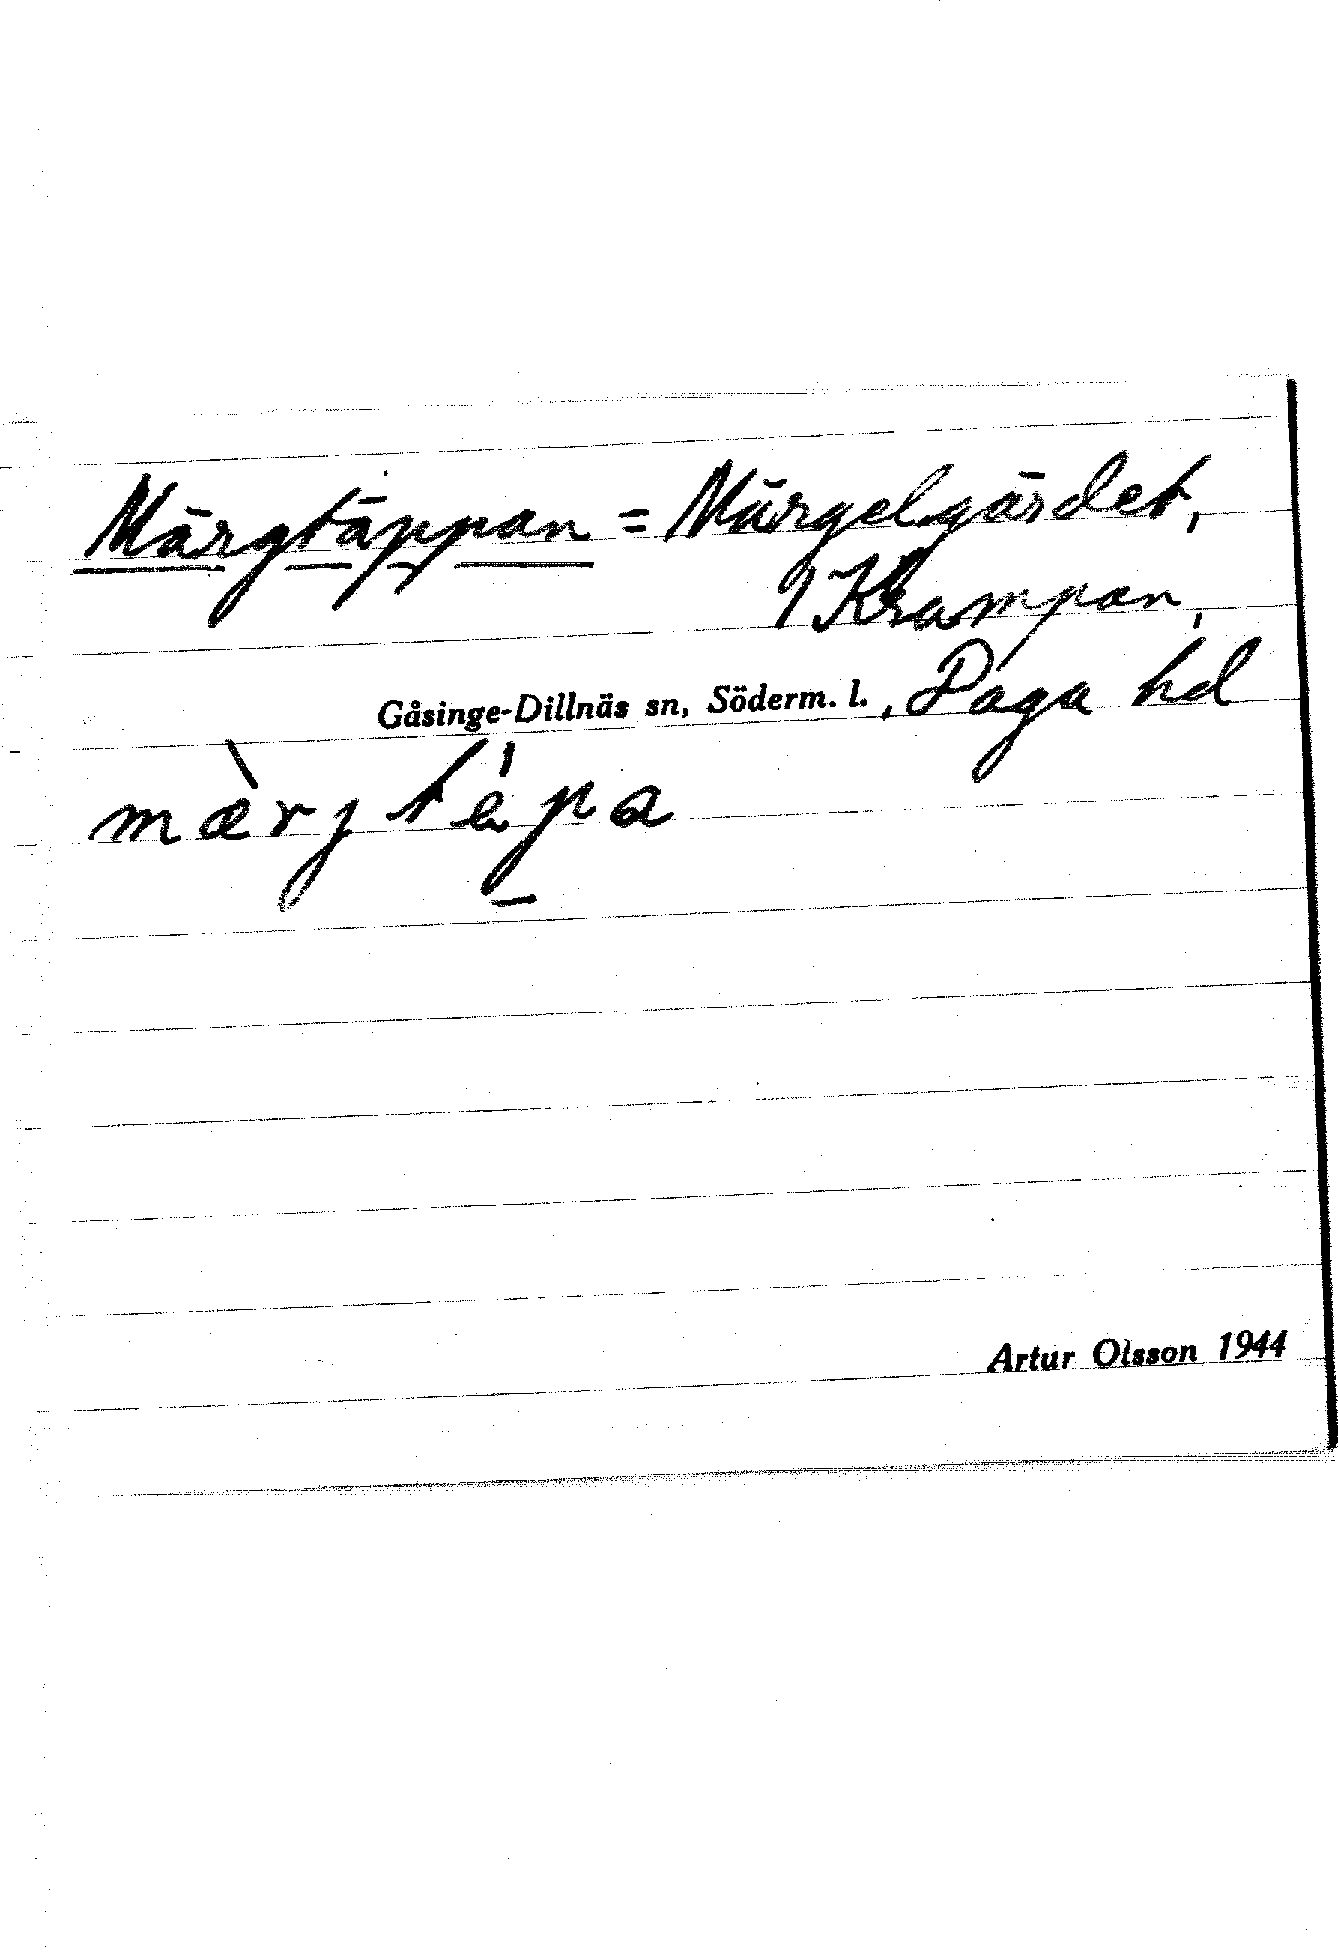 Märgtäppan = Märgelgärdet,
Krampan,
Gåsinge-Dillnäs sn, Söderm. l., Daga hd
mæ̀rjtépa
Artur Olsson 1944